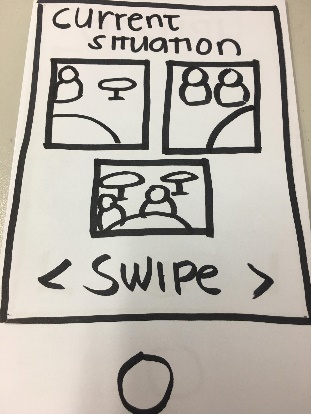 Current
Situation
< Swipe >